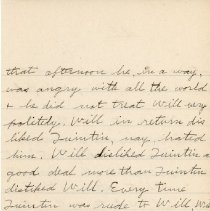 that afternoon he, in a way,
was angry with all the world
& he did not treat Will very
politely. Will in return dis
liked Quintin, nay, hated
him. Will disliked Quintin a
good deal more than Quintin
disliked Will. Every time
Quintin was rude to Will, Wi